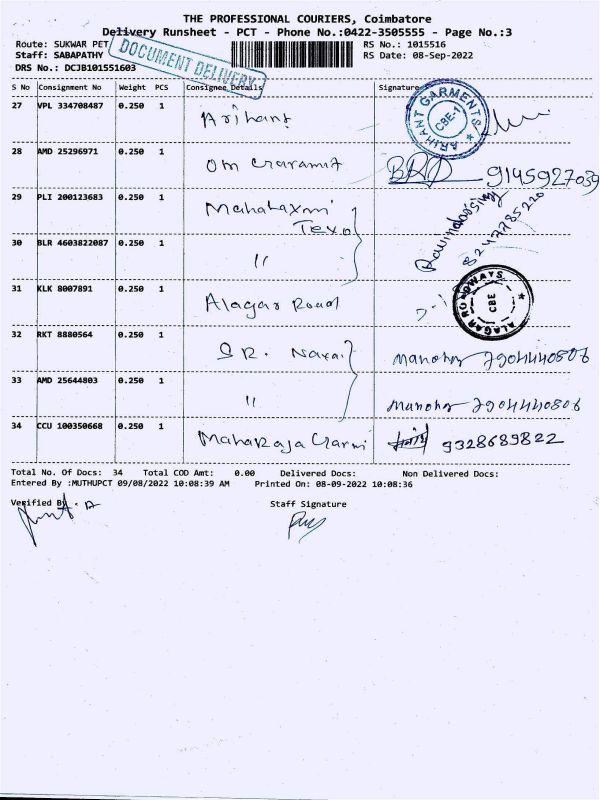 THE PROFESSIONAL COURIERS, Coimbatore
Delivery Runsheet - PCT - Phone No.:0422-3505555 - Page No.:3
Route: SUKWAR PET
RS No.: 1015516
Staff: SABAPATHY
RS Date: 08-Sep-2022
DRS No.: DCJB101551603
DOCUMENT DELIVERY
S No Consignment No Weight PCS Consignee Details Signature
27 VPL 334708487 0.250 1 Arihant
ARIHANT GARMENTS CBE-1
28 AMD 25296971 0.250 1 Om 9145927039
29 PLI 200123683 0.250 1 Mahalaxmi
Texo
8247785220
30 BLR 4603822087 0.250 1 "
31 KLK 8007891 0.250 1 Alagar Road
ALAGAR ROADWAYS CBE
32 RKT 8880564 0.250 1 S R. Manohar 7904440806
33 AMD 25644803 0.250 1 " Manohar 7904440806
34 CCU 100350668 0.250 1 Maharaja 9328689822
Total No. Of Docs: 34 Total COD Amt: 0.00 Delivered Docs: Non Delivered Docs:
Entered By :MUTHUPCT 09/08/2022 10:08:39 AM Printed On: 08-09-2022 10:08:36
Verified By Staff Signature